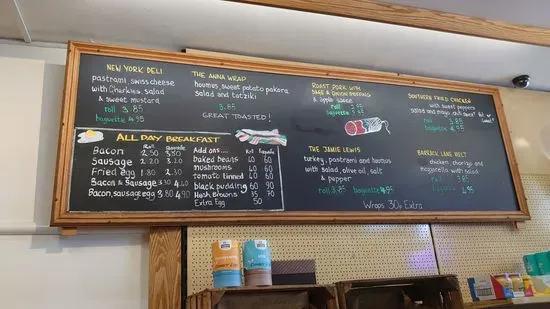 NEW YORK DELI
pastrami, swiss cheese
with Gherkins, salad
& sweet mustard
roll 3.85
baguette 4.95
THE ANNA WRAP
houmus, sweet potato pakora
salad and tatziki
3.85
GREAT TOASTED!
ROAST PORK WITH
SAGE & ONION STUFFING
& apple sauce
roll 3.85
baguette 4.95
SOUTHERN FRIED CHICKEN
with sweet peppers
salad and mayo
roll 3.85
baguette 4.95
ALL DAY BREAKFAST
Roll Baguette
Bacon 2.50
Sausage 2.20 3.20
Fried egg 1.80 2.30
Bacon & Sausage 3.30 4.40
Bacon, sausage, egg 3.80 4.90
Add ons... Roll Baguette
baked beans 40 60
mushrooms 40 60
tomato tinned 40 60
black pudding 60 90
Hash Browns 50 70
Extra Egg 50
THE JAMIE LEWIS
turkey, pastrami and houmus
with salad, olive oil, salt
& pepper
roll 3.85 baguette 4.95
BARRACK LANE MELT
chicken, chorizo and
mozzarella with salad
roll 3.85 baguette 4.95
Wraps 30p Extra